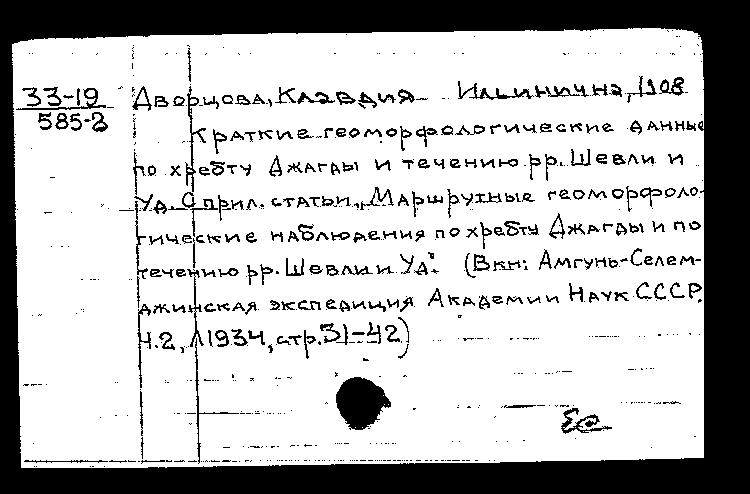 33-19 Дворцова, Клавдия Ильинична, 1908
585-2
Краткие геоморфологические данные
по хребту Джагды и течению рр. Шевли и
Уд. С прил. статьи „Маршрутные геоморфоло-
гические наблюдения по хребту Джагды и по
течению рр. Шевли и Уд". (В кн: Амгунь-Селем-
джинская экспедиция Академии Наук СССР.
Ч.2, Л 1934, стр. 31-42)